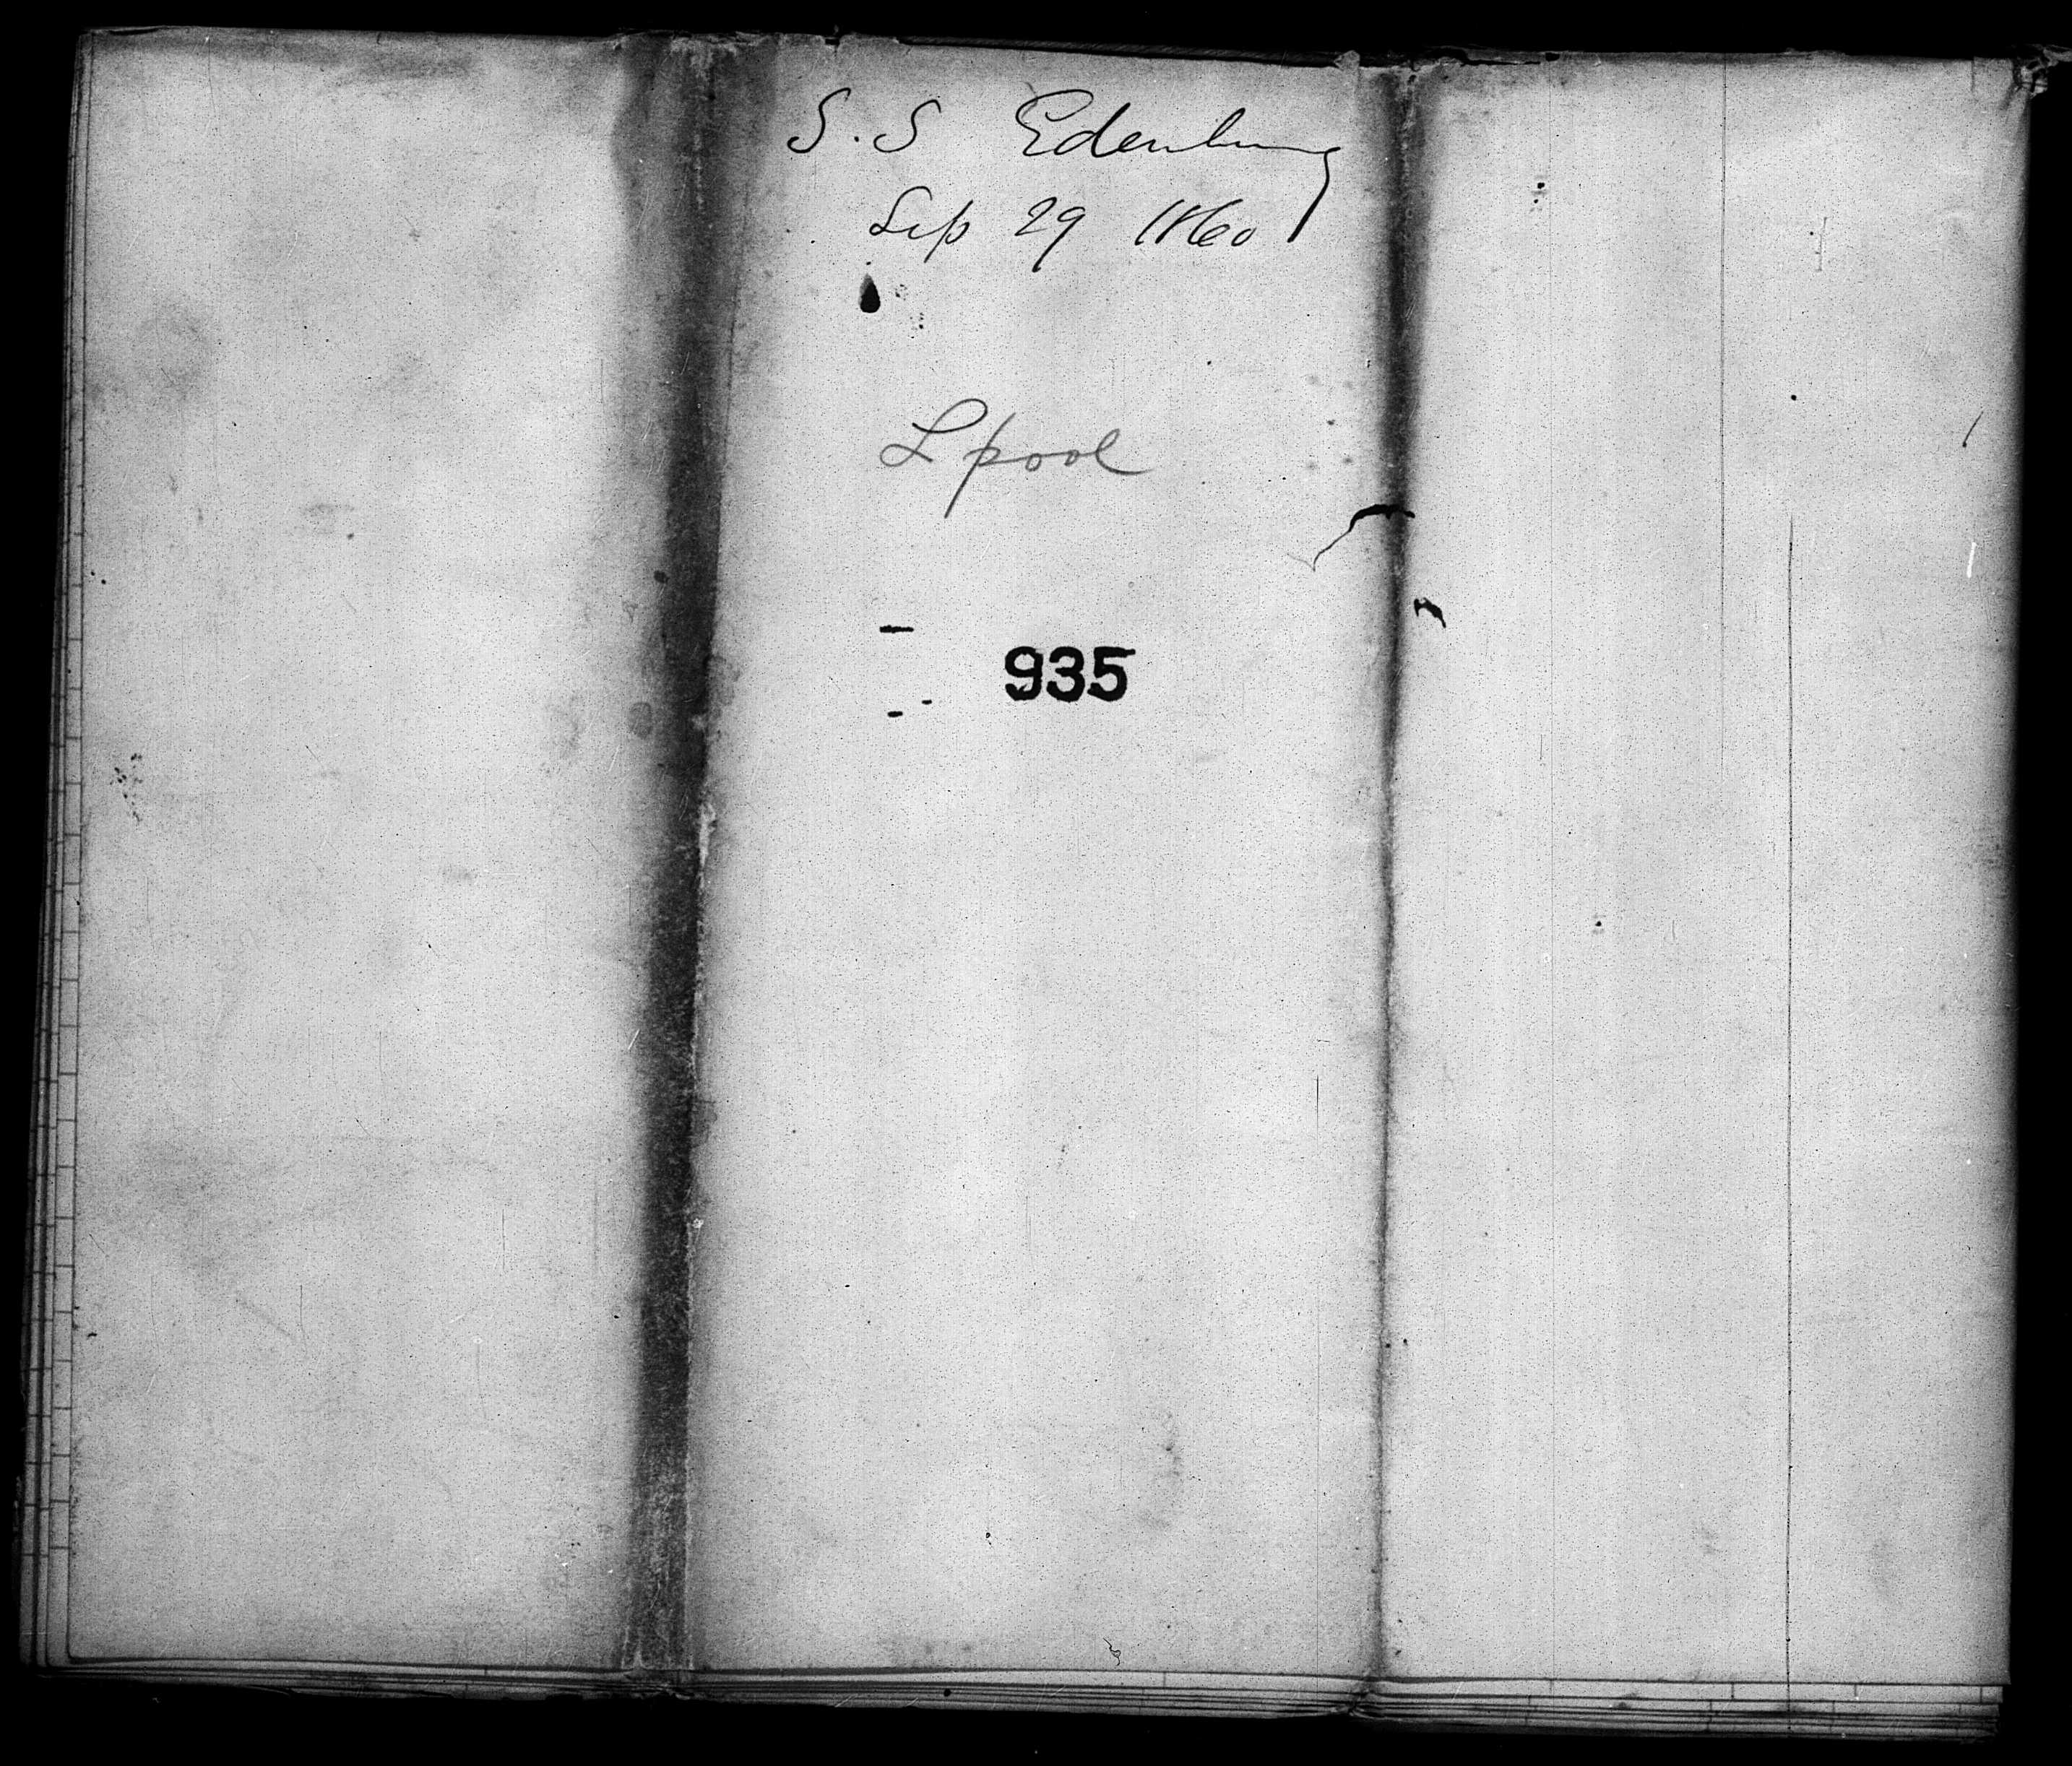 S.S Edenburg
Sep 29 1860
Lpool
935